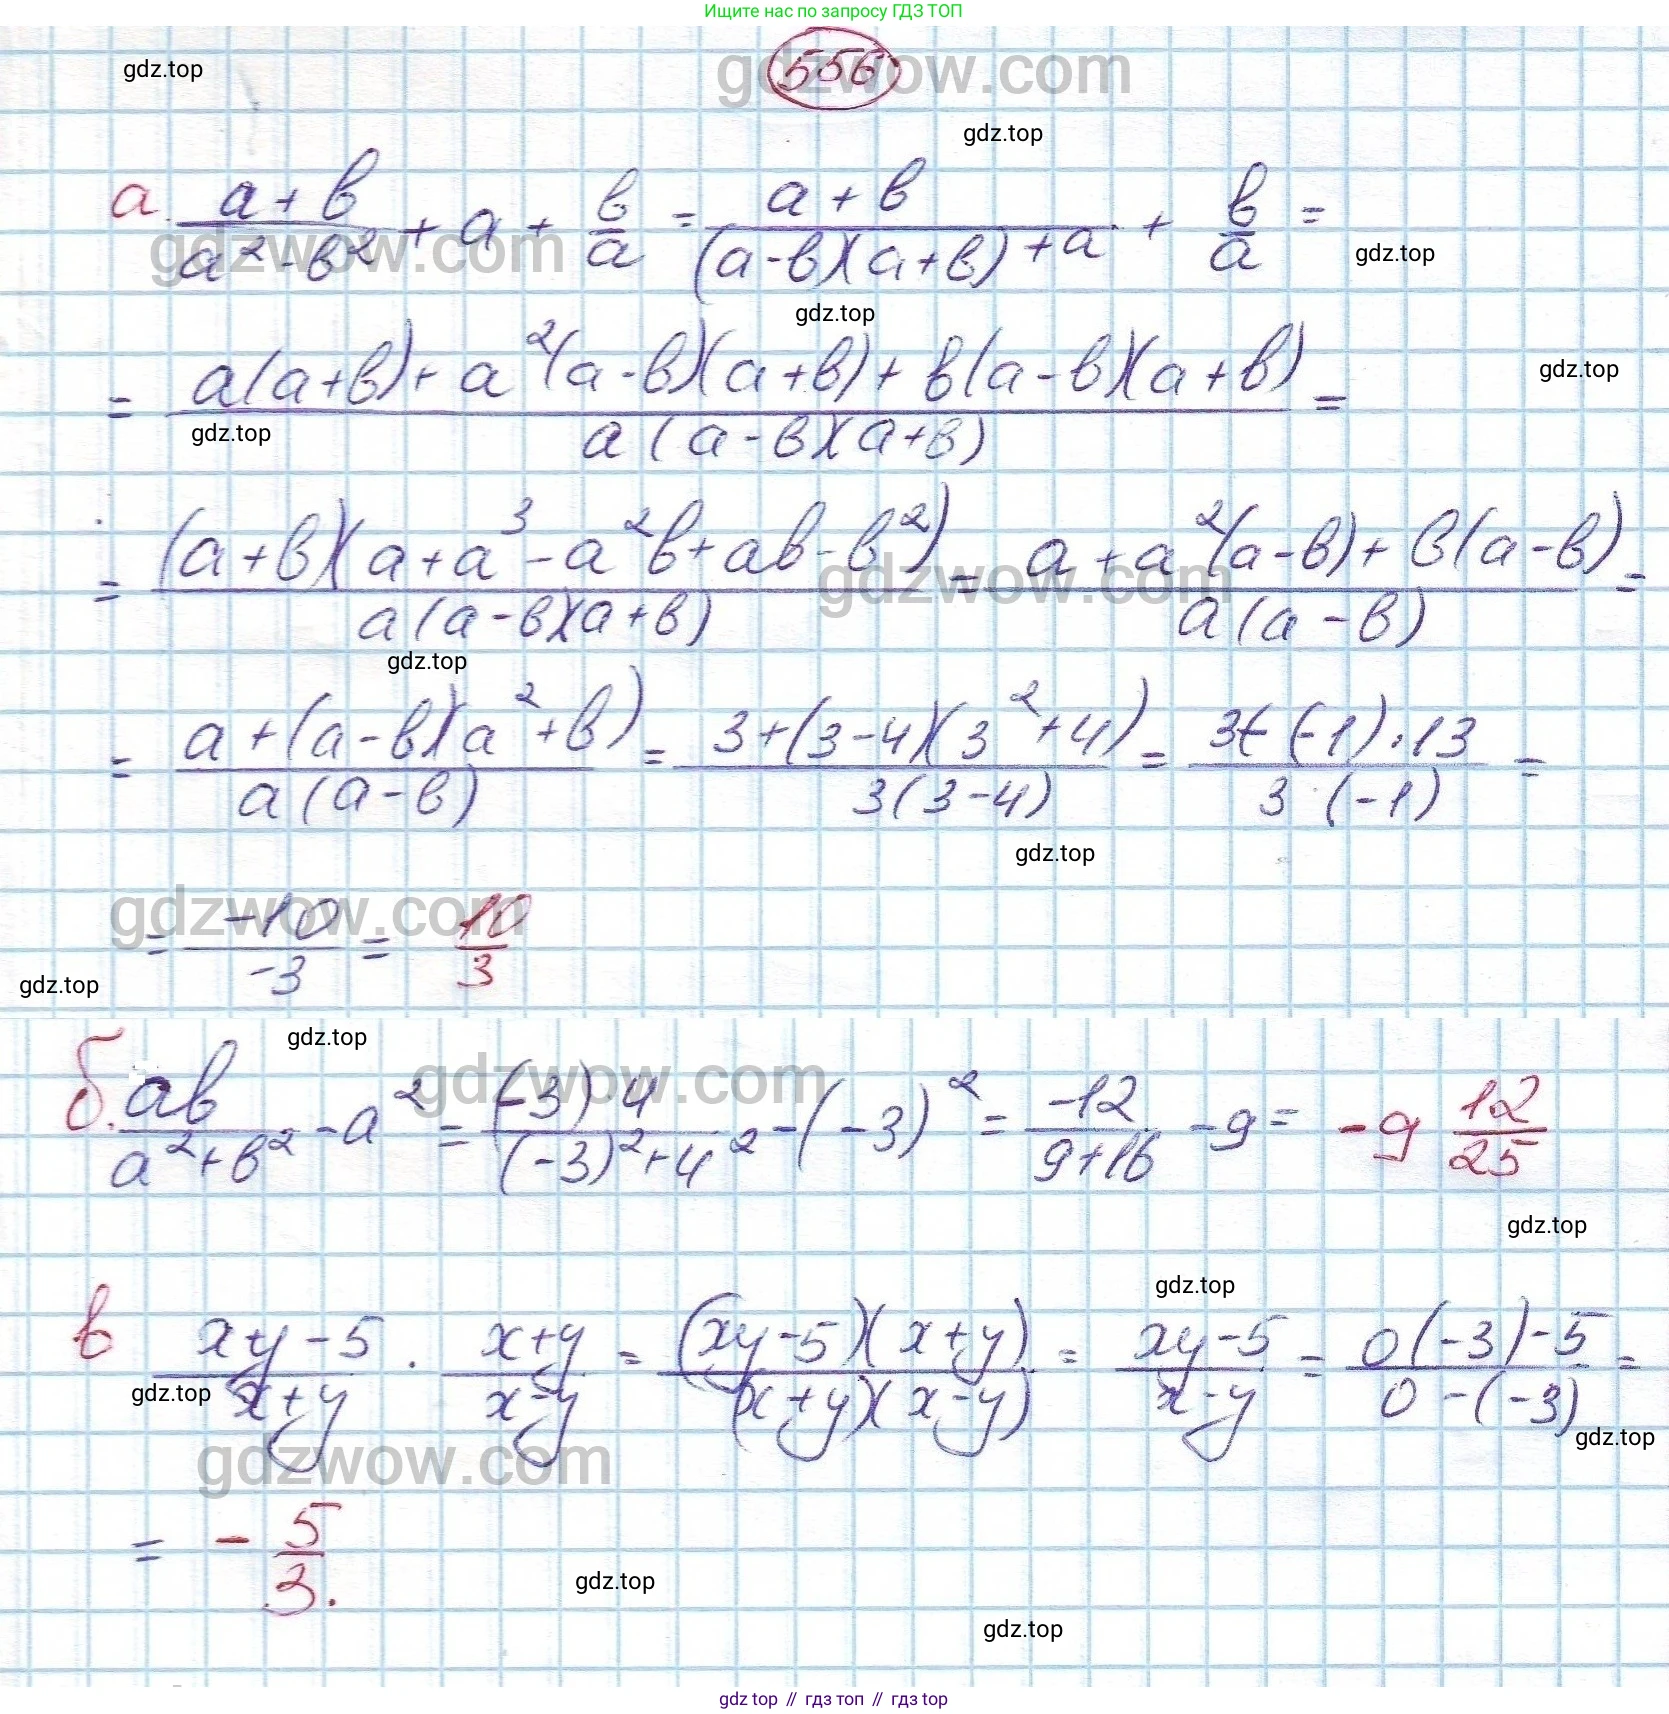 Ищите нас по запросу ГДЗ ТОП
556
gdz.top
gdzwow.com
gdz.top
а. (a+b)/(a²-b²) + a + b/a = (a+b)/((a-b)(a+b)) + a + b/a =
gdzwow.com
gdz.top
gdz.top
= (a(a+b)+a²(a-b)(a+b)+b(a-b)(a+b))/(a(a-b)(a+b)) =
gdz.top
gdz.top
= ((a+b)(a+a³-a²b+ab-b²))/(a(a-b)(a+b)) = (a+a²(a-b)+b(a-b))/(a(a-b)) =
gdzwow.com
gdz.top
= (a+(a-b)(a²+b))/(a(a-b)) = (3+(3-4)(3²+4))/(3(3-4)) = (3+(-1)·13)/(3·(-1)) =
gdz.top
= -10/-3 = 10/3
gdzwow.com
gdz.top
gdz.top
б. ab/(a²+b²) - a² = ((-3)·4)/((-3)²+4²) - (-3)² = -12/(9+16) - 9 = -9 12/25
gdzwow.com
gdz.top
gdz.top
в (xy-5)/(x+y) · (x+y)/(x-y) = ((xy-5)(x+y))/((x+y)(x-y)) = (xy-5)/(x-y) = (0(-3)-5)/(0-(-3)) =
gdz.top
gdz.top
gdzwow.com
= - 5/3.
gdz.top
gdz.top
gdz top // гдз топ // гдз top